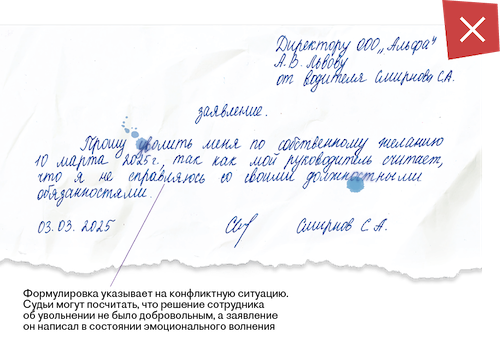 Директору ООО „Альфа“
А.В. Львову
от водителя Смирнова С.А.
заявление.
Прошу уволить меня по собственному желанию
10 марта 2025 г., так как мой руководитель считает,
что я не справляюсь со своими должностными
обязанностями.
03.03.2025 Смирнов С.А.
Формулировка указывает на конфликтную ситуацию.
Судьи могут посчитать, что решение сотрудника
об увольнении не было добровольным, а заявление
он написал в состоянии эмоционального волнения